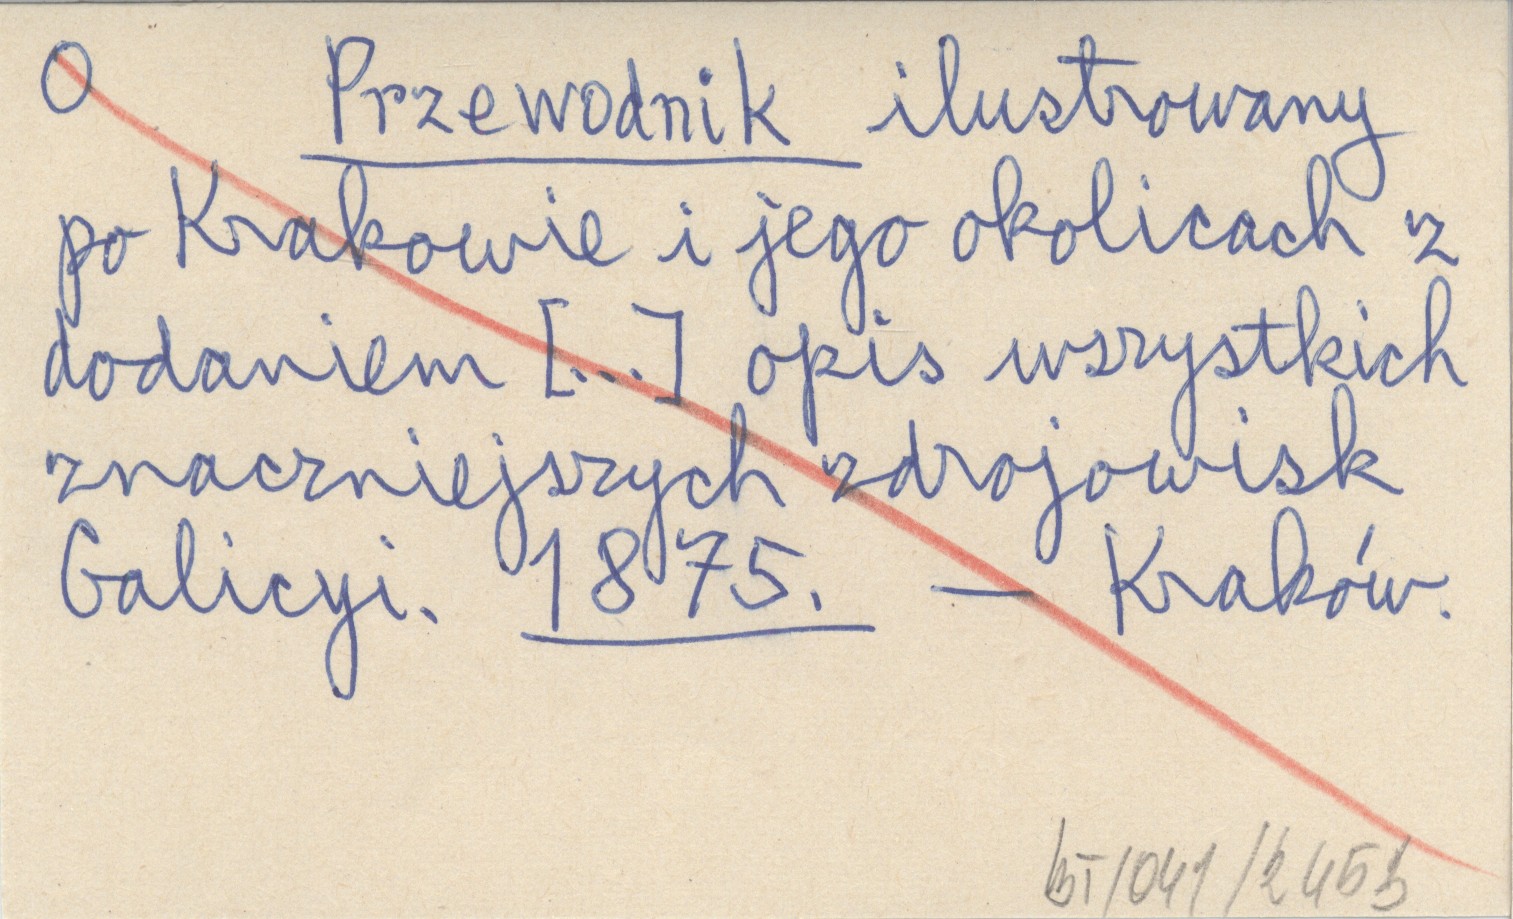 O Przewodnik ilustrowany
po Krakowie i jego okolicach z
dodaniem [...] opis wszystkich
znaczniejszych zdrojowisk
Galicyi. 1875. — Kraków.